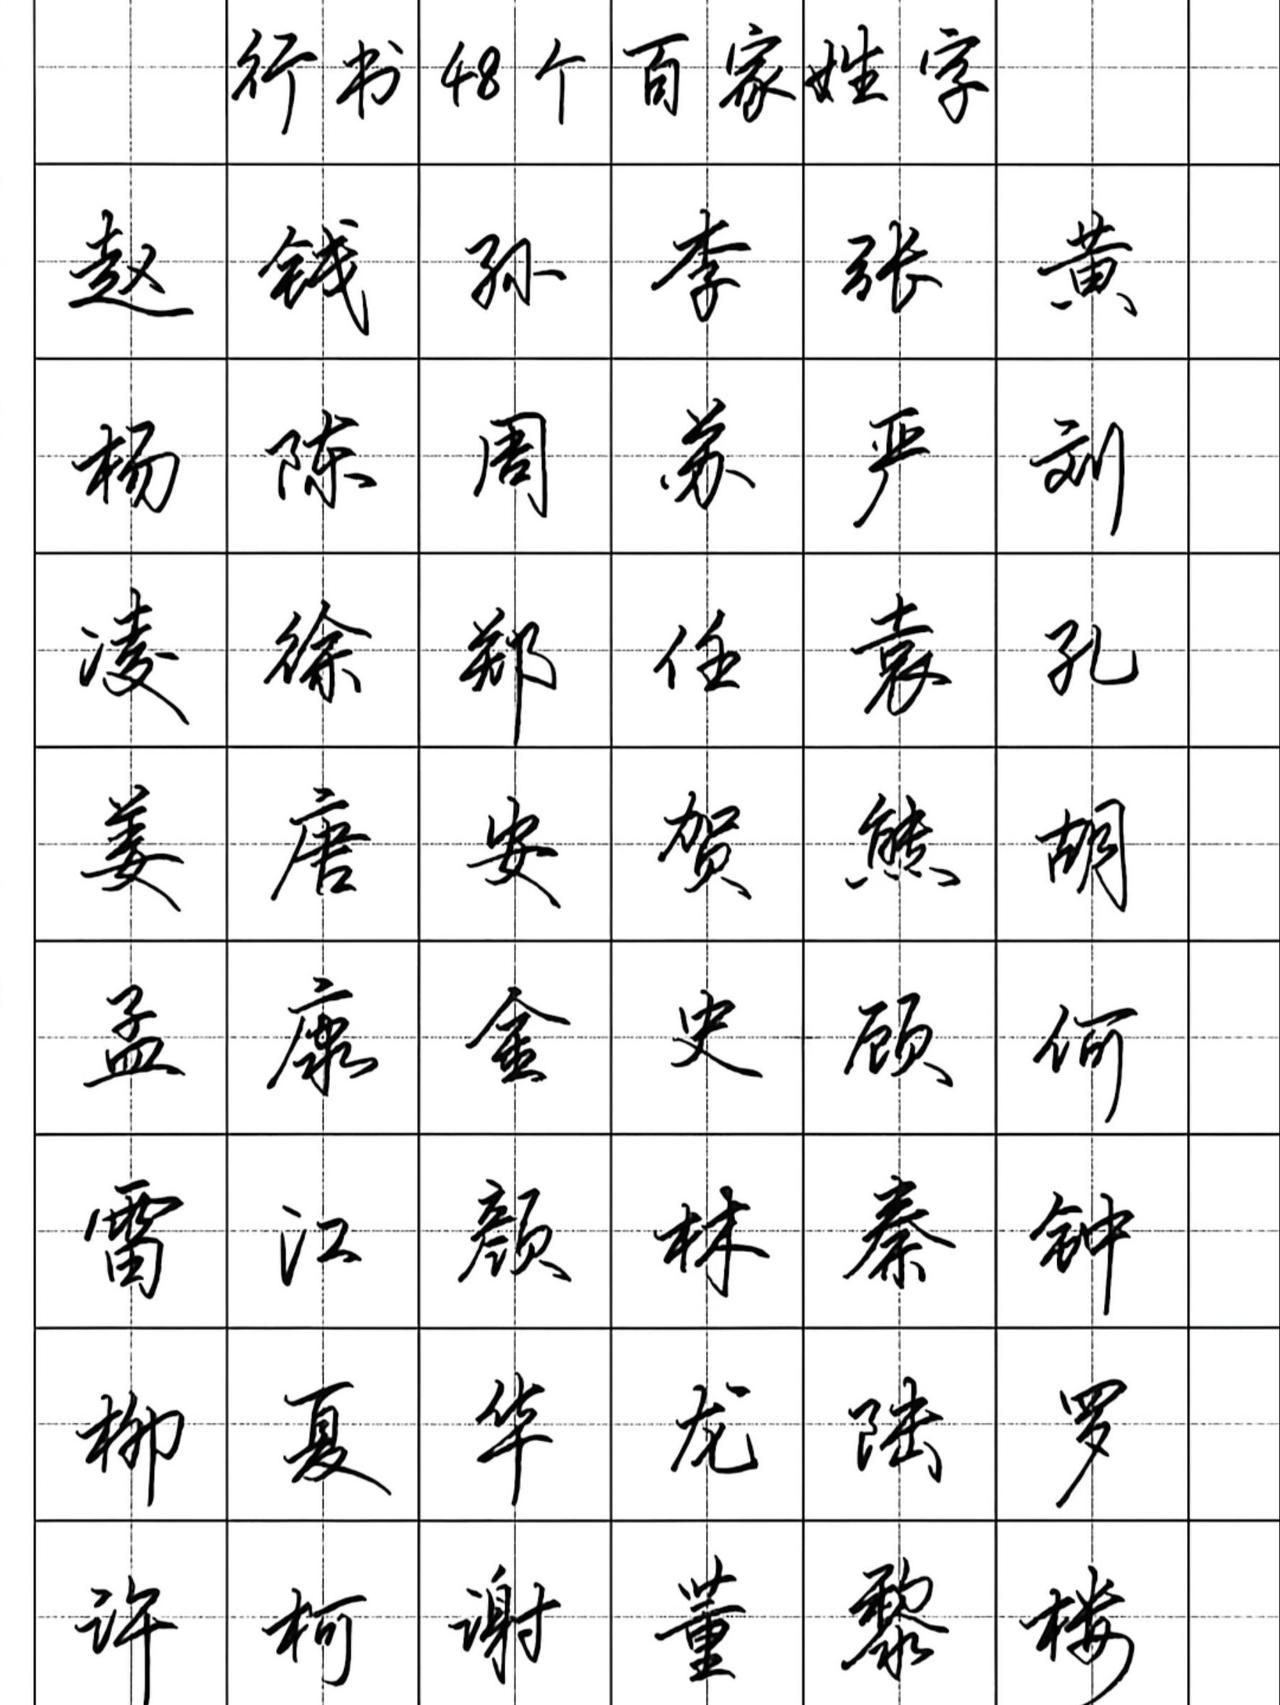 行书48个百家姓字
赵钱孙李张黄
杨陈周苏严刘
凌徐郑任袁孔
姜唐安贺熊胡
孟康金史顾何
雷江颜林秦钟
柳夏华龙陆罗
许柯谢董黎楼